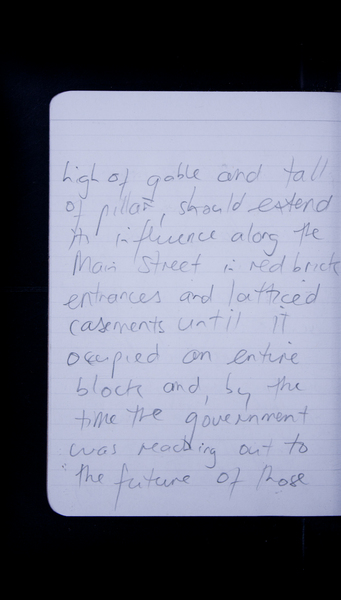 high of gable and tall
of pillar, should extend
its influence along the
Main Street in red brick
entrances and latticed
casements until it
occupied an entire
block and, by the
time the government
was reaching out to
the future of those